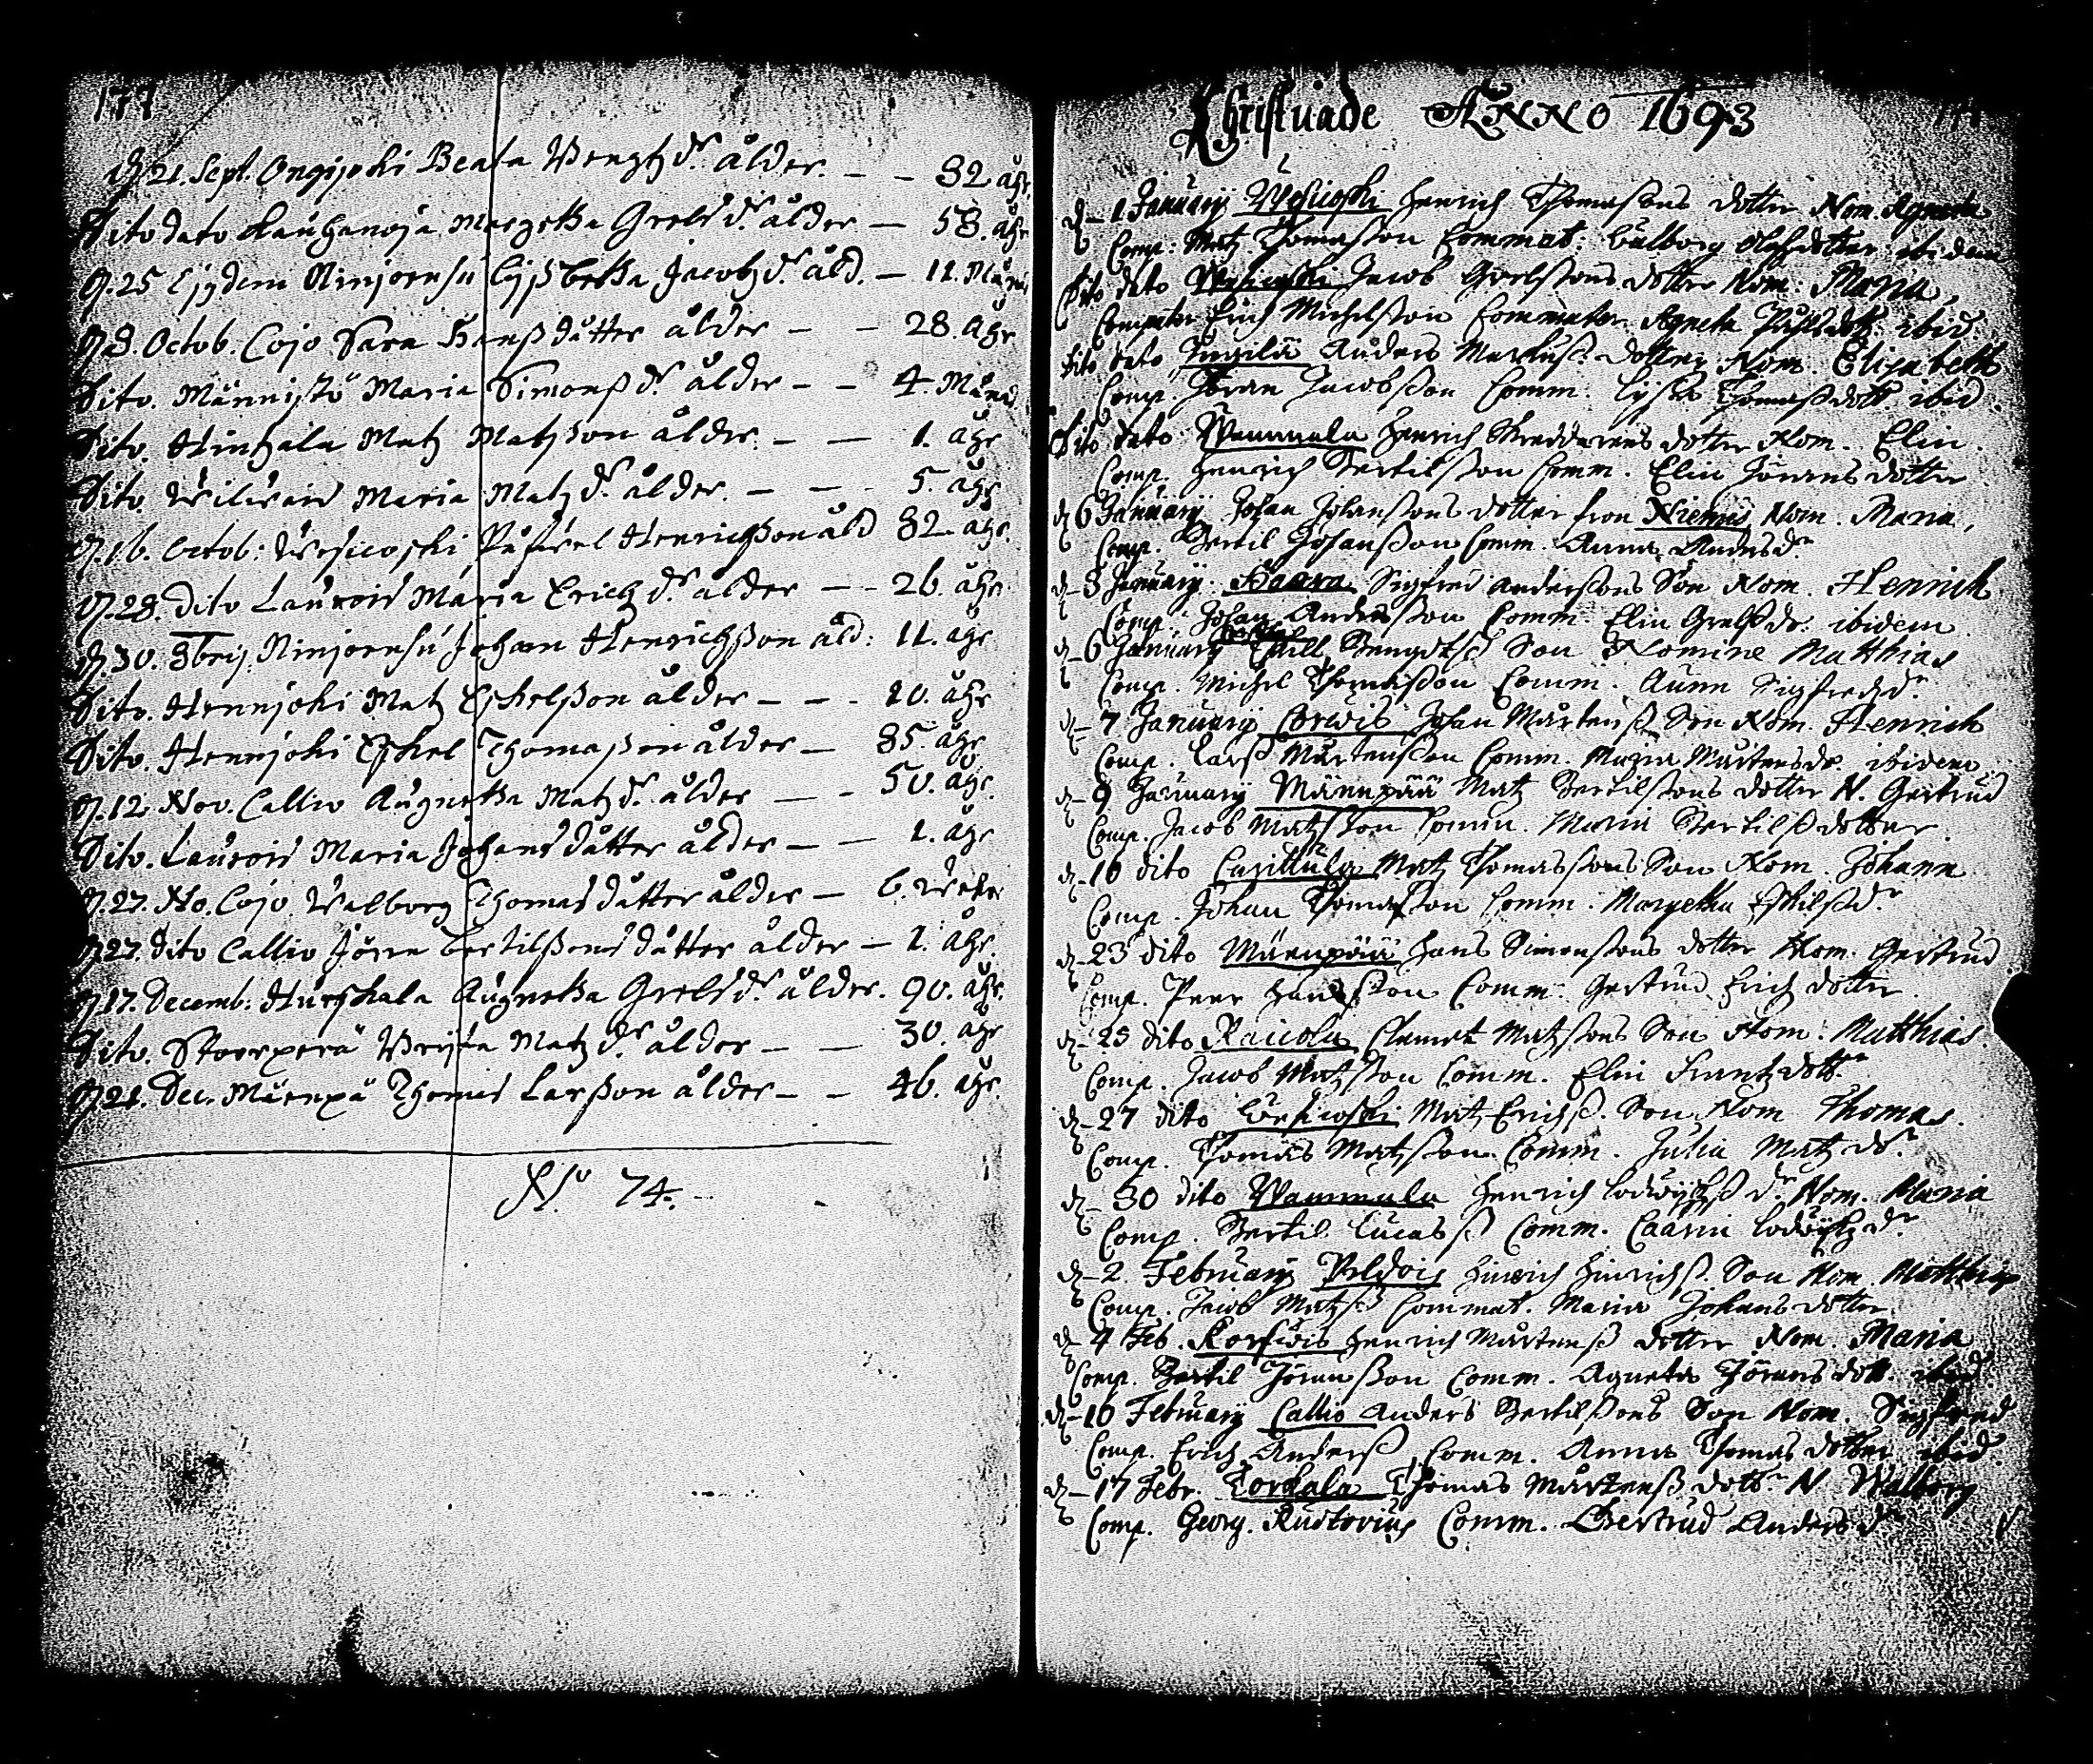 177
D. 21. Sept. Ongijoki Beata Bengtz dr ålder. — — 82 åhr
Dito dato Kauhanoja Margetha Grels dr ålder — 58. åhr
D. 25 Ejusdem Ninjoensu Lijsbetha Jacobz dr åld. — 11. Månad
D. 8. Octob. Cojo Sara Hanßdåtter ålder — — 28. åhr
Dito. Männistö Maria Simonß dr ålder — — 4. Månad
Dito. Hintzala Matz Matzson ålder. — — 1. åhr
Dito. Wilwais Maria Matz dr ålder. — — 5. åhr
D. 16. Octob: Wesicoski Påhwel Henrichßon åld 82. åhr.
D. 28. Dito Laurois Maria Erichz dr ålder — — 26. åhr
D. 30. 8brij Ninjoensu Johan Henrichßon åld: 11. åhr
Dito. Hennjoki Matz Eskelßon ålder — — 10. åhr
Dito. Hennjoki Eskel Thomaßon ålder — 85. åhr
D. 12. Nov. Callio Augnetha Matz dr ålder — — 50. åhr.
Dito. Laurois Maria Johans dåtter ålder — — 1. åhr
D. 27. No. Cojo Walborg Thomas dåtter ålder — 6. Wekor
D. 27. Dito Callio Jören Bertilßons dåtter ålder — 1. åhr.
D. 17. Decemb: Hurskala Augnetha Grels dr ålder. 90. åhr.
Dito. Storperä Brijta Matz dr ålder — — 30. åhr
D. 21. Dec. Mäenpä Thomas Larßon ålder — — 46. åhr.
No 74.
Christnade ANNO 1693
d—1 Januarij Wesicoski Henrich Thomasons dotter Nom. Agneta
Comp: Matz Thomasson Commat: Walborg Olofzdotter ibidem
Dito dato Wesicoski Jacob Grelssons dotter Nom: Maria,
Compater Erich Michelsson Commater Agneta Påhlsdott. ibid
Dito dato Anders Markuß dotter Nom. Elisabeth
Comp. Jöran Jacobsson Comm. Lijsa Thomaßdott. ibid.
Dito dato Wammala Henrich Skreddarens dotter Nom. Elin.
Comp. Henrich Bertilsson Comm. Elin Jörensdotter
d 6 Januarij Johan Johanssons dotter fron Niemis Nom. Maria,
Comp. Bertil Johansson Comm. Anna Anders dr
d—8 Januarij. Haara Sigfred Anderssons Son Nom. Henrich
Comp. Johan Andersson Comm. Elin Grelß dr. ibidem
d—6 Januarij Eskill Bengdtß Son Nomine Matthias
Comp. Michel Thomasson Comm. Anna Sigfredz dr
d—7 Januarij Corwis Johan Mårtenß Son Nom. Henrich
Comp. Larß Mårtensson Comm. Maria Mårtens dr. ibidem
d—9 Januarij Mäenpää Matz Bertilssons dotter N. Gertrud
Comp. Jacob Matzsson Comm. Maria Bertilß dotter.
d—16 dito Carittula Matz Thomassons Son Nom. Johann
Comp. Johan Thomasson Comm. Margetha Eskilß dr
d—23 dito Mäenpää Hans Simonssons dotter Nom. Gertrud
Comp. Peer Hansson Comm. Gertrud Erichz dotter.
d—25 dito Raicola Clemet Matzsons Son Nom: Matthias.
Comp. Jacob Matzsson Comm. Elin Frantz dottr
d—27 dito Wesicoski Matz Erichß. Son Nom Thomas.
Comp. Thomas Matzsson Comm. Julia Matz dr
d—30 dito Wammala Henrich Lodwijchß dr Nom. Maria
Comp. Bertil Lucasß Comm. Caarin Lodwijchz dr
d—2. Februarij Peldois Hinrich Hinrichß. Son Nom. Matthias
Comp. Jacob Matzß Commat. Maria Johans dotter.
d 4 Feb. Korfwis Henrich Mårtenß dotter Nom. Maria
Comp. Bertil Jöransson Comm. Agneta Jörens dott. ibid
d—10 Februarij Callio Anders Bertilßons Son Nom. Sigfred
Comp. Erich Anderß Comm. Anna Thomas dotter ibid
d—17 Febr. Torkala Thomas Mårtenß dottr N Walborg
Comp. Georg. Rustovius Comm. Gertrud Anders dr